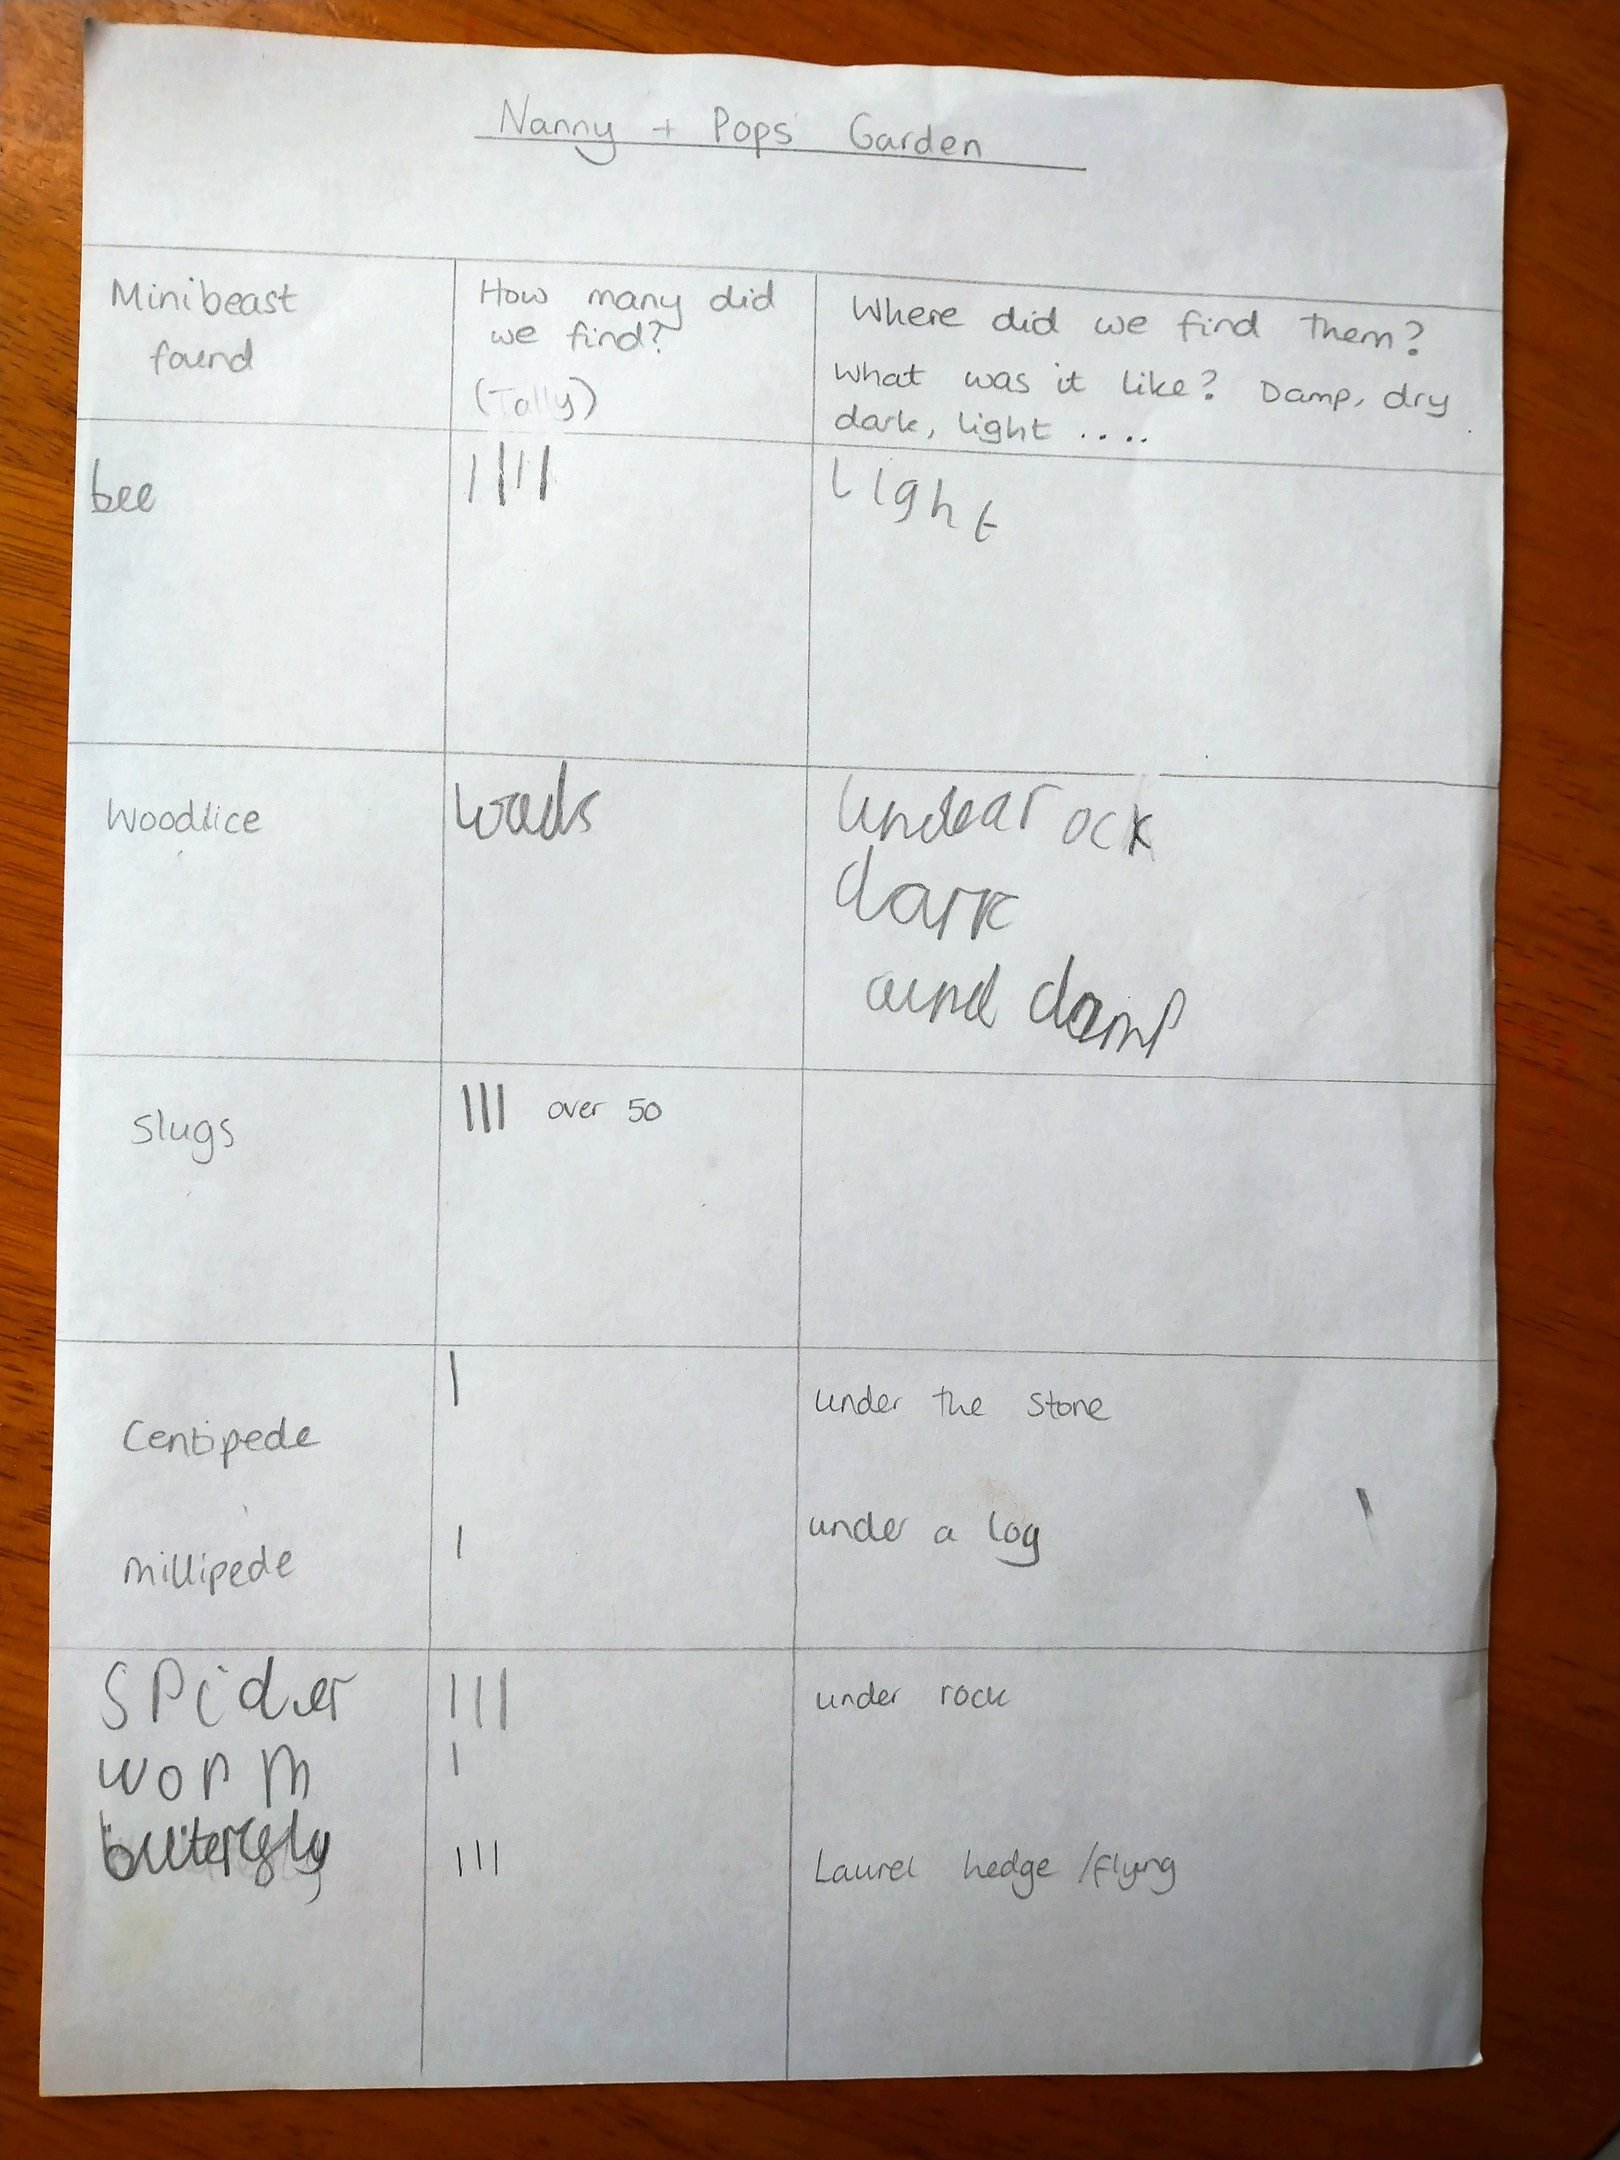 Nanny + Pops Garden
Minibeast found
How many did we find? (Tally)
Where did we find them?
What was it like? Damp, dry
dark, light ....
bee |||| light
Woodlice wads undearock
dark
and damp
slugs ||| over 50
Centipede | under the stone
millipede | under a log
SPider ||| under rock
worm |
||| Laurel hedge / flying